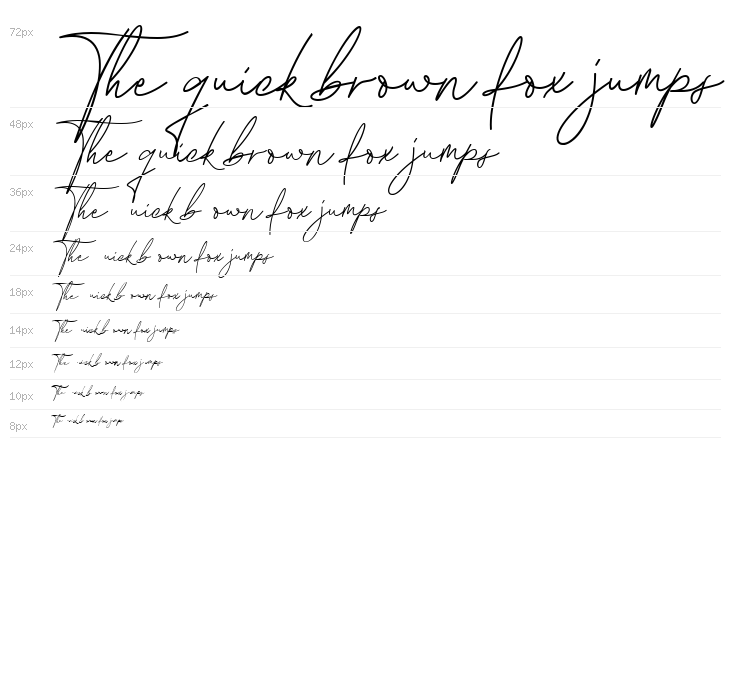 72px The quick brown fox jumps
48px The quick brown fox jumps
36px The uick b own fox jumps
24px The uick b own fox jumps
18px The uick b own fox jumps
14px The uick b own fox jumps
12px The uick b own fox jumps
10px The uick b own fox jumps
8px The uick b own fox jumps